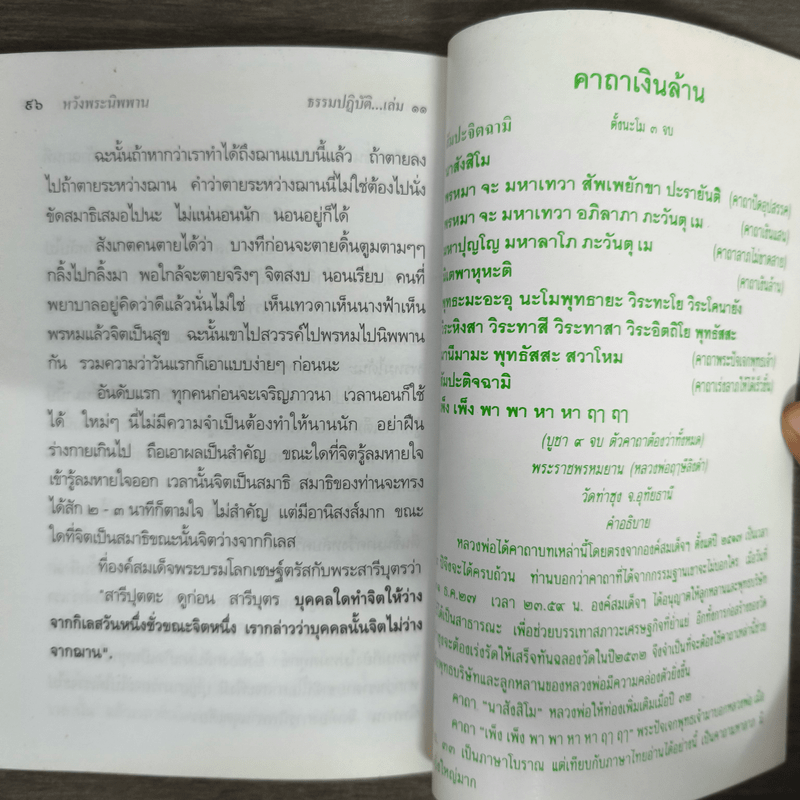 ๙๖ หวังพระนิพพาน ธรรมปฏิบัติ...เล่ม ๑๑
ฉะนั้นถ้าหากว่าเราทำได้ถึงฌานแบบนี้แล้ว ถ้าตายลง
ไปถ้าตายระหว่างฌาน คำว่าตายระหว่างฌานนี่ไม่ใช่ต้องไปนั่ง
ขัดสมาธิเสมอไปนะ ไม่แน่นอนนัก นอนอยู่ก็ได้
สังเกตคนตายได้ว่า บางทีก่อนจะตายดิ้นตูมตามๆๆ
กลิ้งไปกลิ้งมา พอใกล้จะตายจริงๆ จิตสงบ นอนเรียบ คนที่
พยาบาลอยู่คิดว่าดีแล้วนั่นไม่ใช่ เห็นเทวดาเห็นนางฟ้าเห็น
พรหมแล้วจิตเป็นสุข ฉะนั้นเขาไปสวรรค์ไปพรหมไปนิพพาน
กัน รวมความว่าวันแรกก็เอาแบบง่ายๆ ก่อนนะ
อันดับแรก ทุกคนก่อนจะเจริญภาวนา เวลานอนก็ใช้
ได้ ใหม่ๆ นี่ไม่มีความจำเป็นต้องทำให้นานนัก อย่าฝืน
ร่างกายเกินไป ถือเอาผลเป็นสำคัญ ขณะใดที่จิตรู้ลมหายใจ
เข้ารู้ลมหายใจออก เวลานั้นจิตเป็นสมาธิ สมาธิของท่านจะทรง
ได้สัก ๒ - ๓ นาทีก็ตามใจ ไม่สำคัญ แต่มีอานิสงส์มาก ขณะ
ใดที่จิตเป็นสมาธิขณะนั้นจิตว่างจากกิเลส
ที่องค์สมเด็จพระบรมโลกเชษฐ์ตรัสกับพระสารีบุตรว่า
"สารีปุตตะ ดูก่อน สารีบุตร บุคคลใดทำจิตให้ว่าง
จากกิเลสวันหนึ่งชั่วขณะจิตหนึ่ง เรากล่าวว่าบุคคลนั้นจิตไม่ว่าง
จากฌาน".
คาถาเงินล้าน
ตั้งนะโม ๓ จบ
ัมปะจิตฉามิ
นาสังสิโม
พรหมา จะ มหาเทวา สัพเพยักขา ปะรายันติ (คาถาปัดอุปสรรค)
พรหมา จะ มหาเทวา อภิลาภา ภะวันตุ เม (คาถาเงินแสน)
มหาปุญโญ มหาลาโภ ภะวันตุ เม (คาถาลาภไม่ขาดสาย)
มิเตพาหุหะติ (คาถาเงินล้าน)
พุทธะมะอะอุ นะโมพุทธายะ วิระทะโย วิระโคนายัง
วิระหิงสา วิระทาสี วิระทาสา วิระอิตถิโย พุทธัสสะ
มานีมามะ พุทธัสสะ สวาโหม (คาถาพระปัจเจกพุทธเจ้า)
ัมปะติจฉามิ (คาถาเร่งลาภให้ได้เร็วขึ้น)
เพ็ง เพ็ง พา พา หา หา ฤๅ ฤๅ
(บูชา ๙ จบ ตัวคาถาต้องว่าทั้งหมด)
พระราชพรหมยาน (หลวงพ่อฤๅษีลิงดำ)
วัดท่าซุง จ.อุทัยธานี
คำอธิบาย
หลวงพ่อได้คาถาบทเหล่านี้โดยตรงจากองค์สมเด็จฯ ตั้งแต่ปี เป็นเวลา
ปีจึงจะได้ครบถ้วน ท่านบอกว่าคาถาที่ได้จากกรรมฐานเขาจะไม่บอกใคร เมื่อวันที่
ธ.ค.๒๗ เวลา ๒๓.๕๙ น. องค์สมเด็จฯ ได้อนุญาตให้ลูกหลานและพุทธบริษัท
ได้เป็นสาธารณะ เพื่อช่วยบรรเทาสภาวะเศรษฐกิจที่ย่ำแย่ อีกทั้งการก่อสร้างของวัด
จะต้องเร่งรัดให้เสร็จทันฉลองวัดในปี๒๕๓๒ จึงจำเป็นที่จะต้องใช้คาถาเหล่านี้ช่วย
พุทธบริษัทและลูกหลานของหลวงพ่อมีความคล่องตัวยิ่งขึ้น
คาถา "นาสังสิโม" หลวงพ่อให้ท่องเพิ่มเติมเมื่อปี ๓๒
คาถา "เพ็ง เพ็ง พา พา หา หา ฤๅ ฤๅ" พระปัจเจกพุทธเจ้ามาบอกหลวงพ่อ เมื่อ
๓๓ เป็นภาษาโบราณ แต่เทียบกับภาษาไทยอ่านได้อย่างนี้ เป็นคาถามหาลาภ มี
ใหญ่มาก